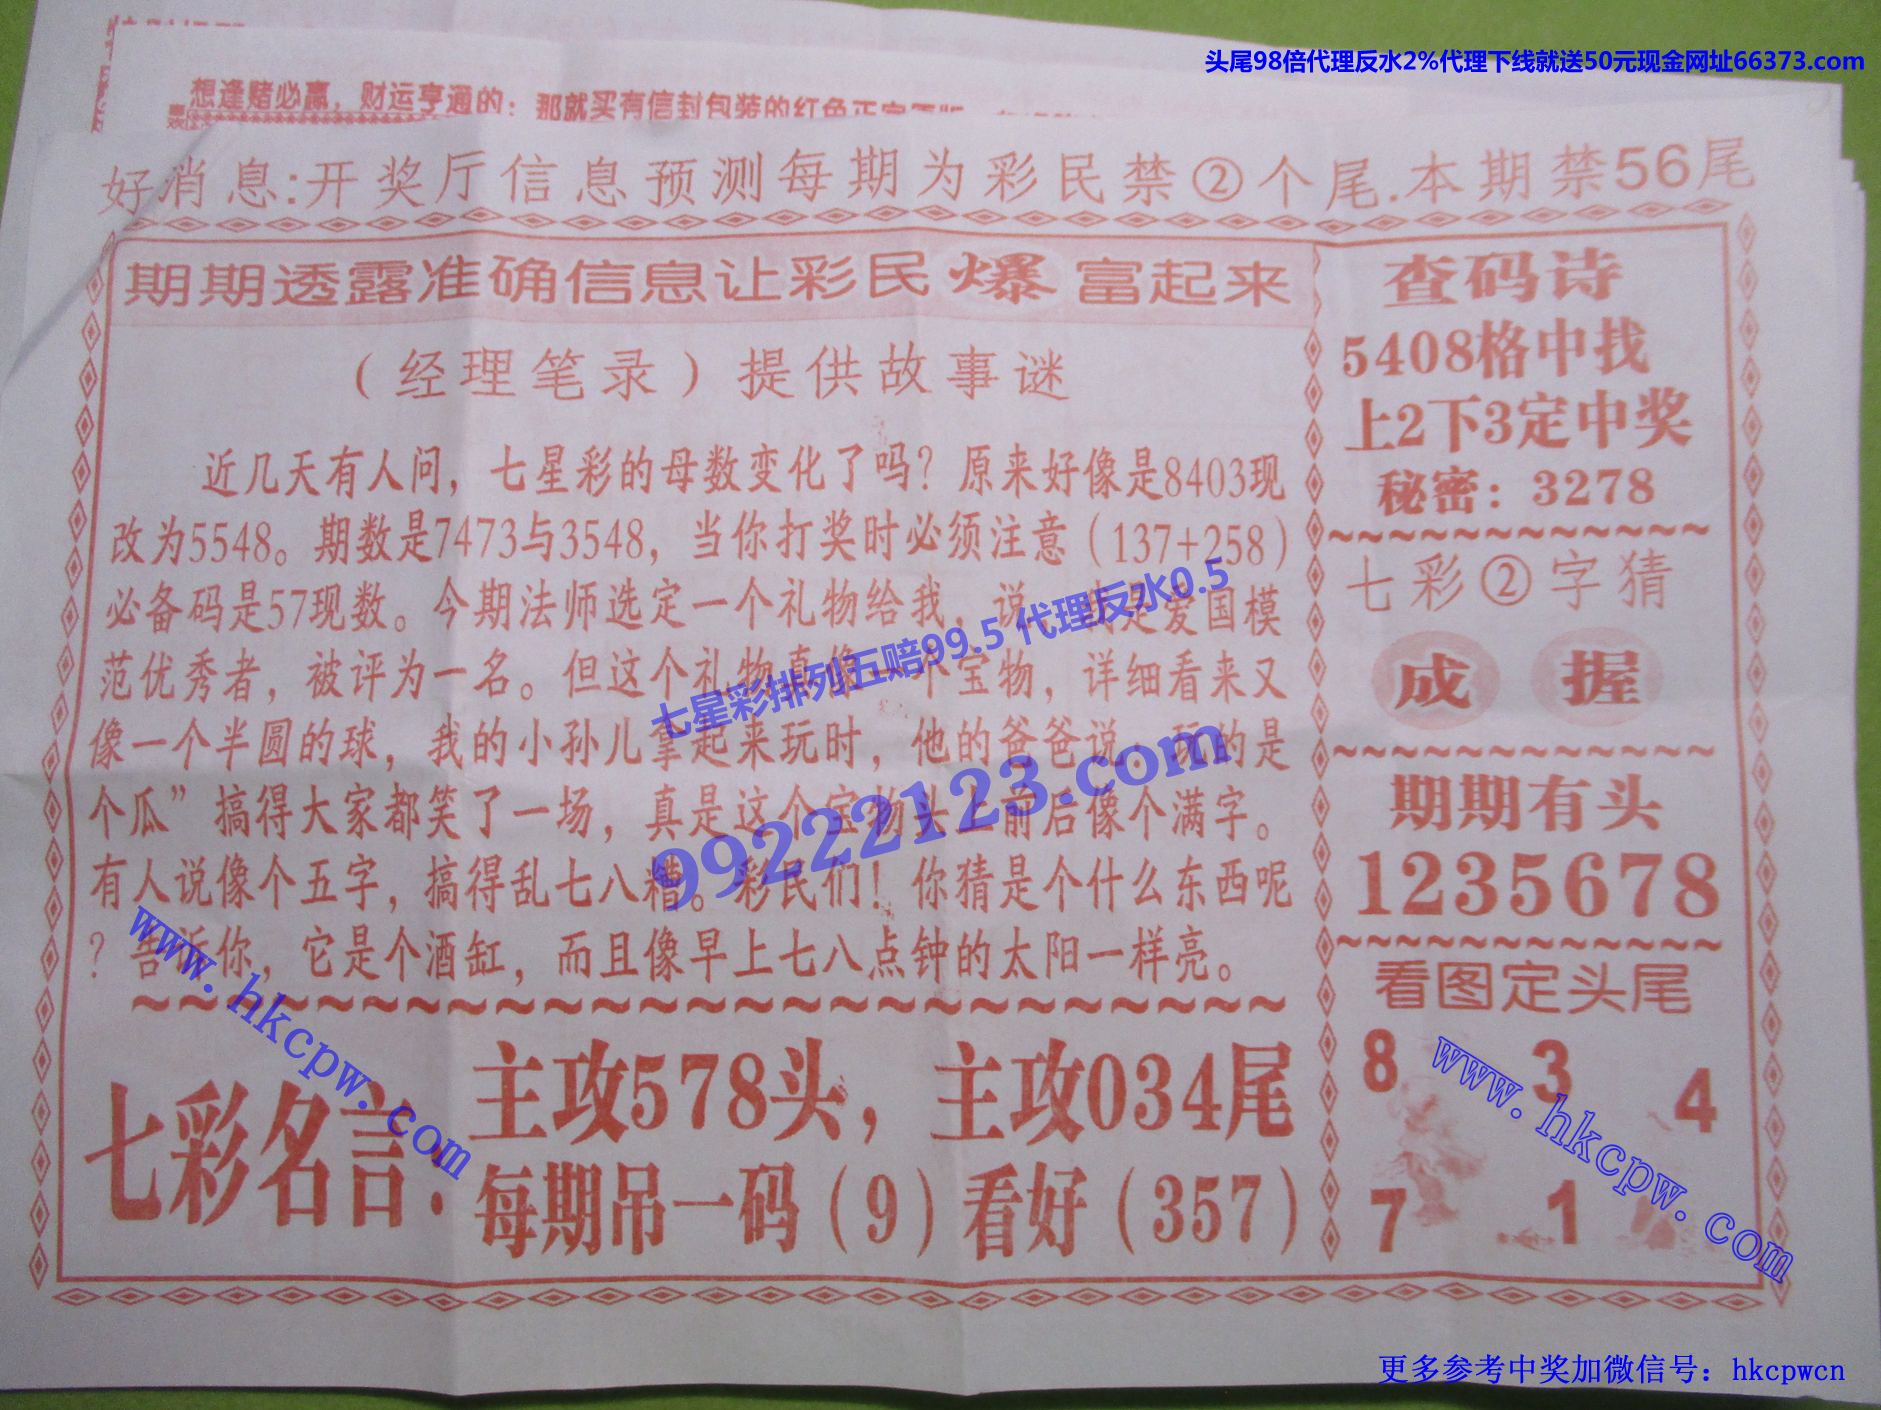 头尾98倍代理反水2%代理下线就送50元现金网址66373.com
想逢赌必赢，财运亨通的：那就买有信封包装的红色正宗原版
好消息:开奖厅信息预测每期为彩民禁②个尾.本期禁56尾
期期透露准确信息让彩民爆富起来
（经理笔录）提供故事谜
近几天有人问，七星彩的母数变化了吗？原来好像是8403现
改为5548。期数是7473与3548，当你打奖时必须注意（137+258）
必备码是57现数。今期法师选定一个礼物给我，说：我是爱国模
范优秀者，被评为一名。但这个礼物真像一个宝物，详细看来又
像一个半圆的球，我的小孙儿拿起来玩时，他的爸爸说：玩的是
个瓜”搞得大家都笑了一场，真是这个宝物头上前后像个满字。
有人说像个五字，搞得乱七八糟。彩民们！你猜是个什么东西呢
？告诉你，它是个酒缸，而且像早上七八点钟的太阳一样亮。
七彩名言：
主攻578头，主攻034尾
每期吊一码（9）看好（357）
查码诗
5408格中找
上2下3定中奖
秘密：3278
七彩②字猜
成 握
期期有头
1235678
看图定头尾
8 3 4
7 1
七星彩排列五赔99.5 代理反水0.5
99222123.com
www.hkcpw.com
www.hkcpw.com
更多参考中奖加微信号：hkcpwcn